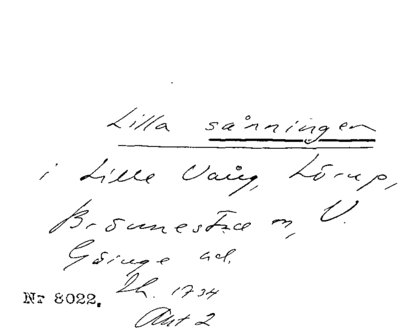 Lilla sånningen
i Lille Vång, Lörup,
Brönnestad sn, V.
Göinge hd.
Nr 8022. Lh. 1734
Akt 2